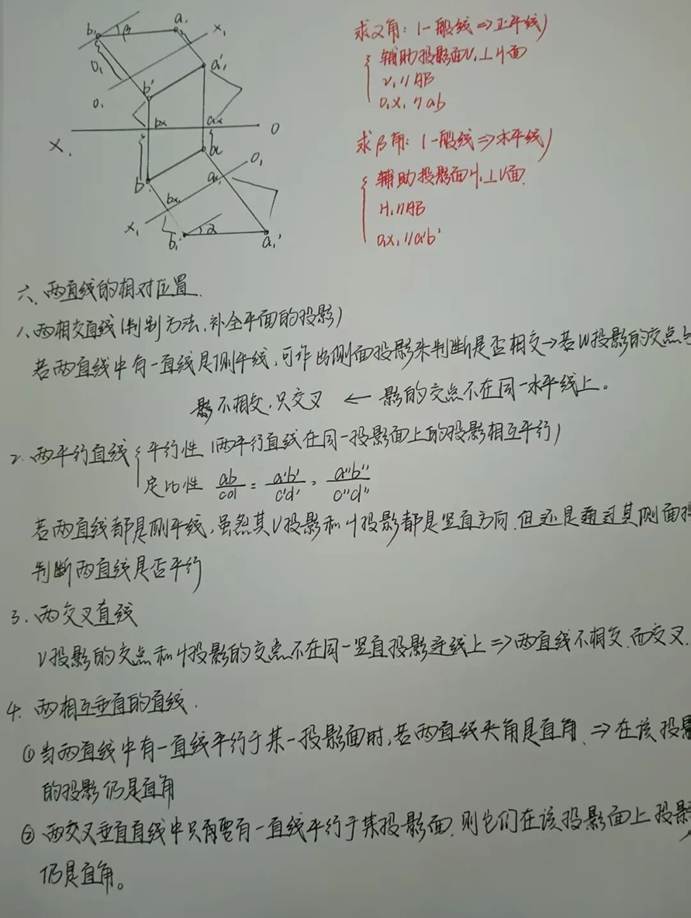 b₁ β a₁
X₁
O₁
a'
b'
O₁
X bx ax O
a
b
O₁
ax₁
bx₁
X₁
b₁' α a₁'
求α角:(一般线⇒正平线)
辅助投影面V₁⊥H面
V₁//AB
O₁X₁//ab
求β角:(一般线⇒水平线)
辅助投影面H₁⊥V面
H₁//AB
O₁X₁//a'b'
六、两直线的相对位置.
1、两相交直线(判别方法、补全平面的投影)
若两直线中有一直线是侧平线,可作出侧面投影来判断是否相交→若W投影的交点与
影不相交,只交叉 ← 影的交点不在同一水平线上。
2、两平行直线 平行性(两平行直线在同一投影面上的投影相互平行)
定比性 ab/cd = a'b'/c'd' = a"b"/c"d"
若两直线都是侧平线,虽然其V投影和H投影都是竖直方向,但还是通过其侧面投
判断两直线是否平行
3、两交叉直线
V投影的交点和H投影的交点不在同一竖直投影连线上⇒两直线不相交,而交叉.
4、两相互垂直的直线.
①当两直线中有一直线平行于某一投影面时,若两直线夹角是直角、⇒在该投影
的投影仍是直角
②两交叉垂直直线中只需要有一直线平行于某投影面,则它们在该投影面上投影
仍是直角。